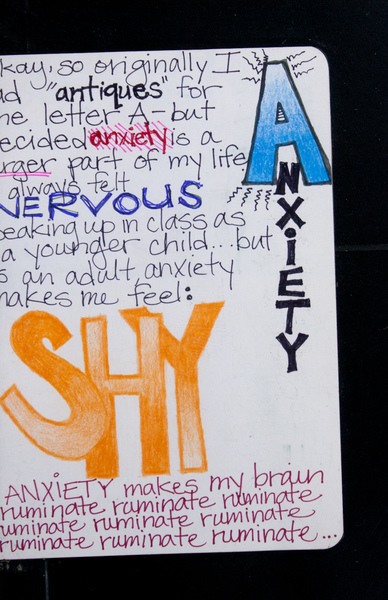 kay, so originally I
ad "antiques" for
he letter A - but
ecided anxiety is a
arger part of my life
always felt
NERVOUS
peaking up in class as
a younger child...but
s an adult, anxiety
makes me feel:
SHY
ANXIETY makes my brain
ruminate ruminate ruminate
ruminate ruminate ruminate
ruminate ruminate ruminate...
ANXIETY